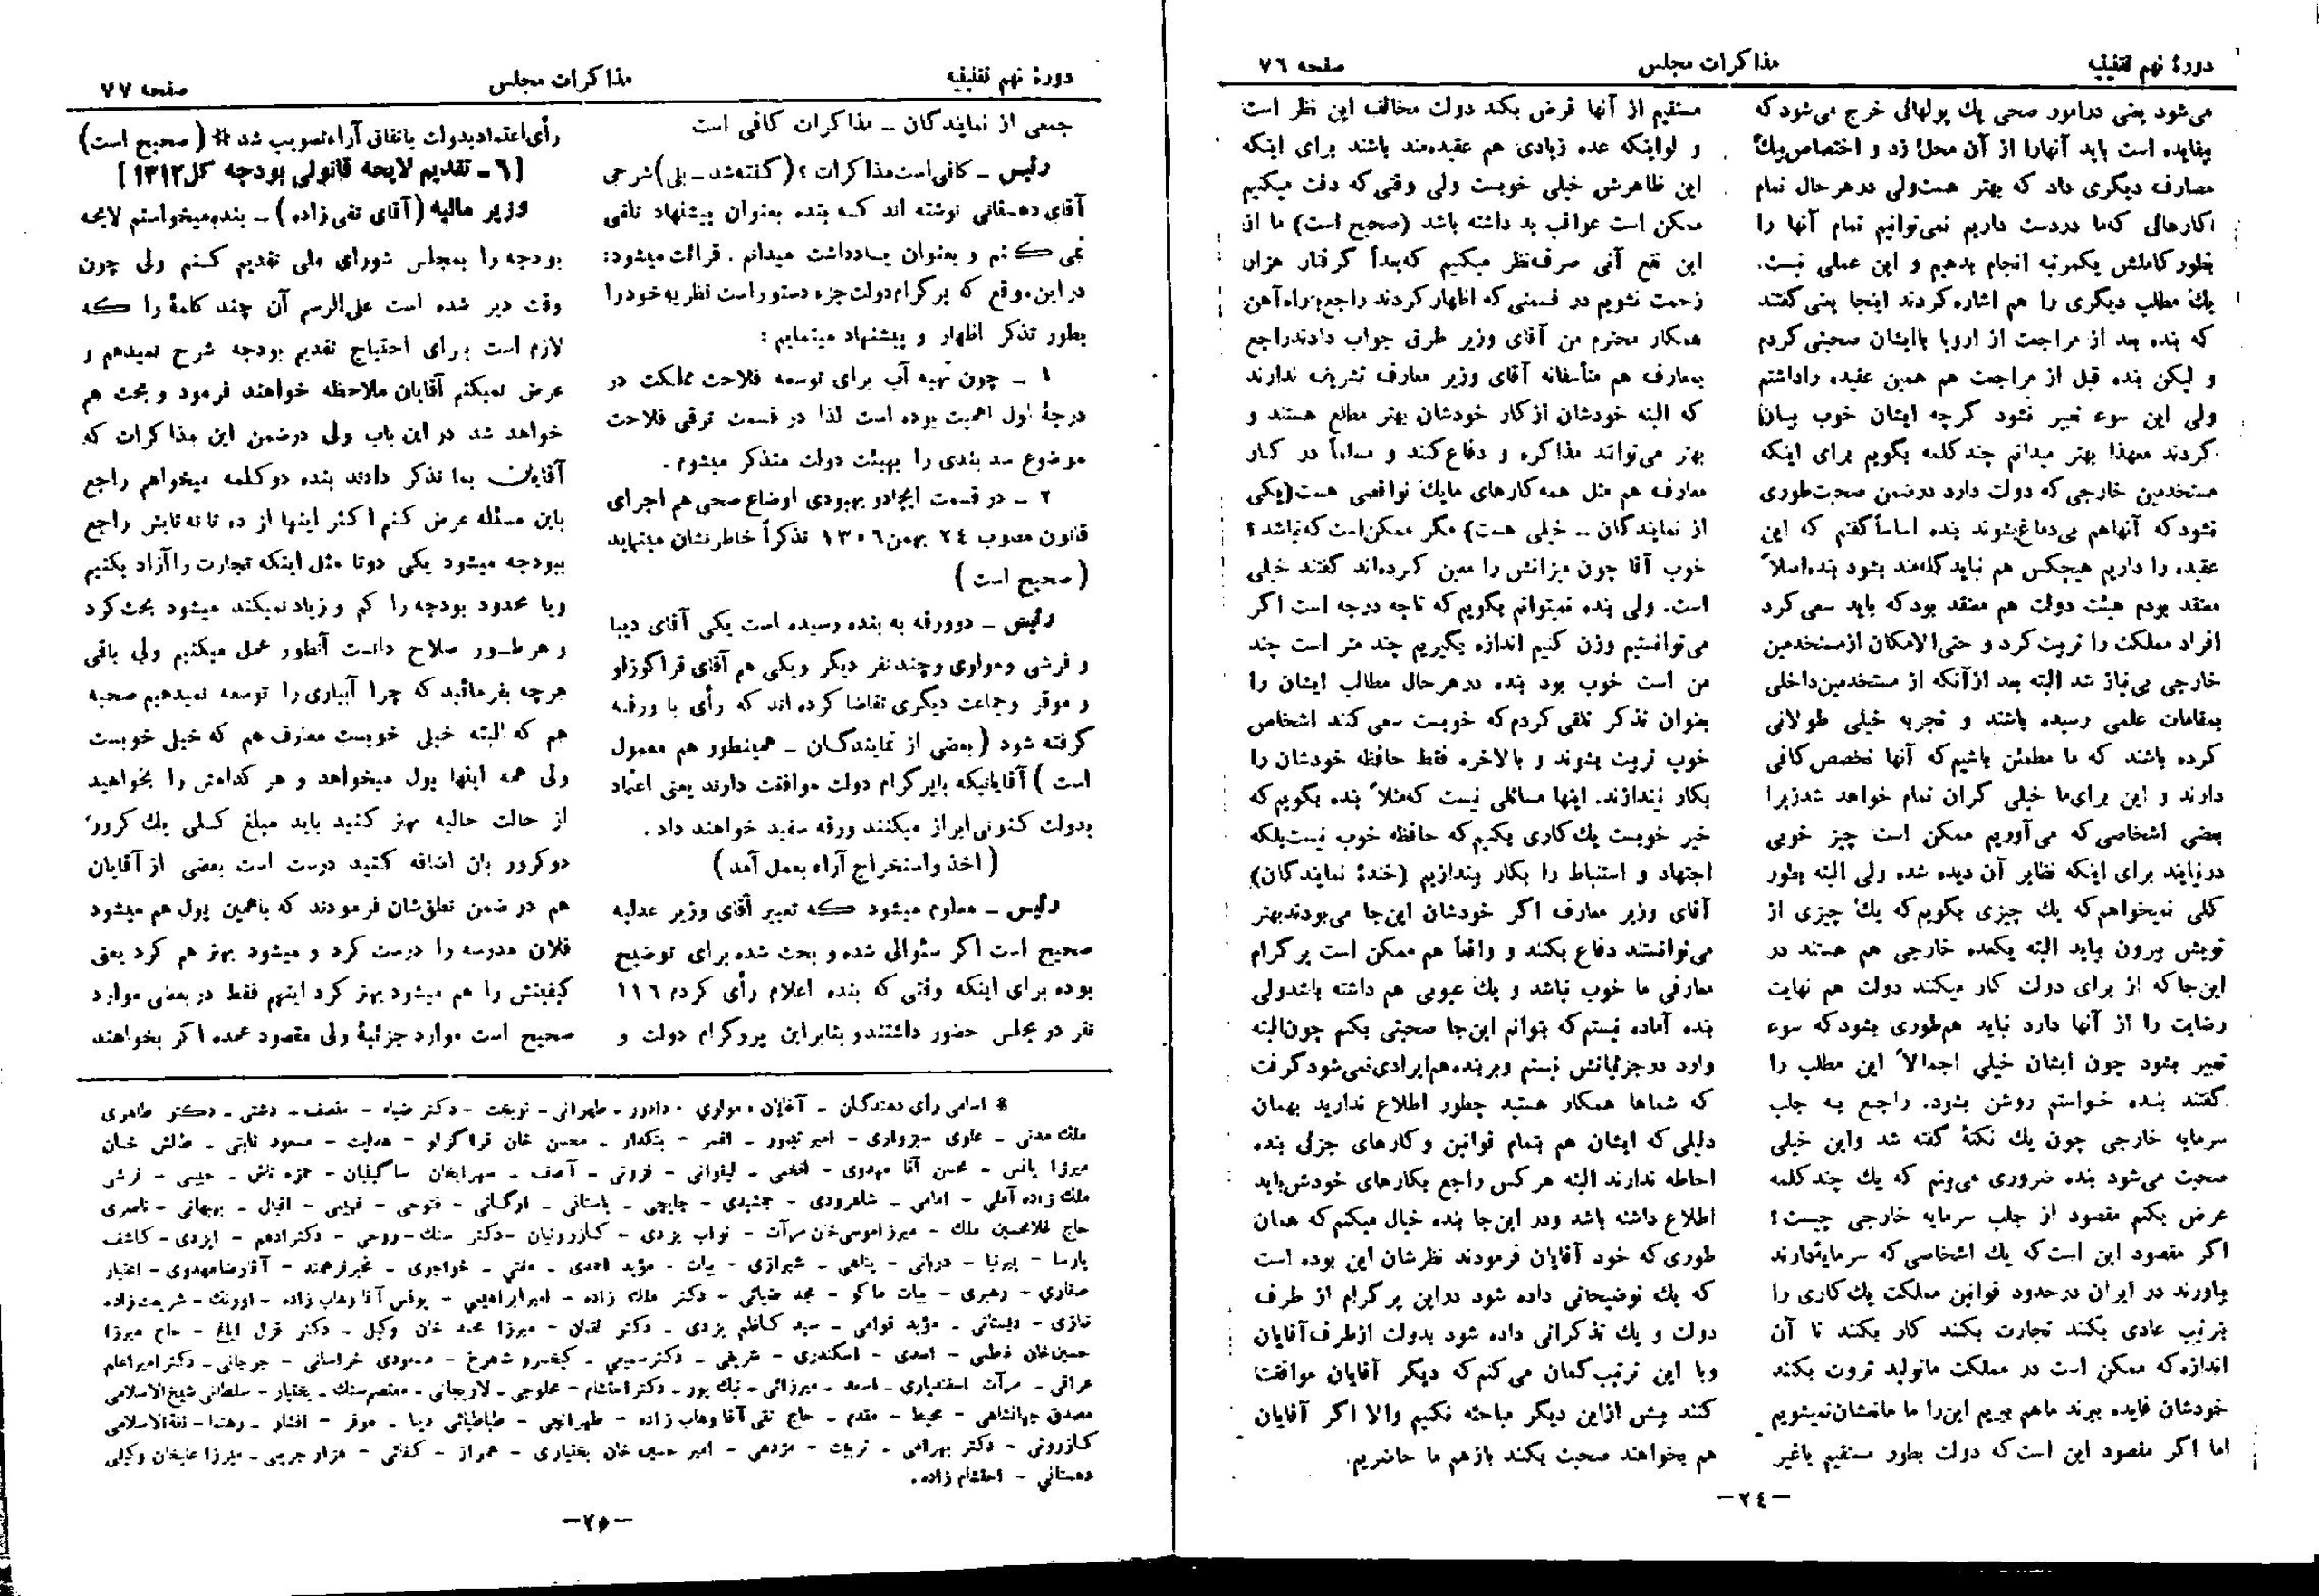 دورهٔ نهم تقنینیه
مذاکرات مجلس
صفحه ٧٦
می‌شود یعنی در امور صحی یك پولهائی خرج می‌شود که
بیفایده است باید آنها را از آن محل زد و اختصاص یك
مصارف دیگری داد که بهتر هست ولی در هر حال تمام
کارهائی که ما در دست داریم نمی‌توانیم تمام آنها را
بطور کاملش یکمرتبه انجام بدهیم و این عملی نیست.
یك مطلب دیگری را هم اشاره کردند اینجا یعنی گفتند
که بنده بعد از مراجعت از اروپا با ایشان صحبتی کردم
و لیکن بنده قبل از مراجعت هم همین عقیده را داشتم
ولی این سوء تعبیر نشود گرچه ایشان خوب بیان
کردند معهذا بهتر میدانم چند کلمه بگویم برای اینکه
مستخدمین خارجی که دولت دارد در ضمن صحبت طوری
نشود که آنها هم بی‌دماغ بشوند بنده اساساً گفتم که این
عقیده را داریم هیچکس هم نباید گله‌مند بشود بنده اصلاً
معتقد بودم هیئت دولت هم معتقد بود که باید سعی کرد
افراد مملکت را تربیت کرد و حتی‌الامکان از مستخدمین
خارجی بی‌نیاز شد البته بعد از آنکه از مستخدمین داخلی
بمقامات علمی رسیده باشند و تجربه خیلی طولانی
کرده باشند که ما مطمئن باشیم که آنها تخصص کافی
دارند و این برای ما خیلی گران تمام خواهد شد زیرا
بعضی اشخاصی که می‌آوریم ممکن است چیز خوبی
در نیایند برای اینکه نظایر آن دیده شده ولی البته بطور
کلی نمیخواهم که یك چیزی بگویم که یك چیزی از
تویش بیرون بیاید البته یکعده خارجی هم هستند در
این‌جا که از برای دولت کار میکنند دولت هم نهایت
رضایت را از آنها دارد نباید هم طوری بشود که سوء
تعبیر بشود چون ایشان خیلی اجمالاً این مطلب را
گفتند بنده خواستم روشن بشود. راجع به جلب
سرمایه خارجی چون یك نکتهٔ گفته شد و این خیلی
صحبت می‌شود بنده ضروری می‌بینم که یك چند کلمه
عرض بکنم مقصود از جلب سرمایه خارجی چیست؟
اگر مقصود این است که یك اشخاصی که سرمایه‌دارند
بیاورند در ایران در حدود قوانین مملکت یك کاری را
بترتیب عادی بکنند تجارت بکنند کار بکنند تا آن
اندازه که ممکن است در مملکت ما تولید ثروت بکنند
خودشان فایده ببرند ما هم ببریم این را ما مانعشان نمیشویم
اما اگر مقصود این است که دولت بطور مستقیم یا غیر
مستقیم از آنها قرض بکند دولت مخالف این نظر است
و لو اینکه عده زیادی هم عقیده‌مند باشند برای اینکه
این ظاهرش خیلی خوبست ولی وقتی که دقت میکنیم
ممکن است عواقب بد داشته باشد (صحیح است) ما از
این نفع آنی صرف‌نظر میکنیم که بعداً گرفتار هزار
زحمت نشویم در قسمتی که اظهار کردند راجع براه‌آهن
همکار محترم من آقای وزیر طرق جواب دادند راجع
بمعارف هم متأسفانه آقای وزیر معارف تشریف ندارند
که البته خودشان از کار خودشان بهتر مطلع هستند و
بهتر می‌توانند مذاکره و دفاع کنند و مسلماً در کار
معارف هم مثل همه کارهای ما یك نواقصی هست (یکی
از نمایندگان .. خیلی هست) مگر ممکن است که نباشد؟
خوب آقا چون میزانش را معین کرده‌اند گفتند خیلی
است. ولی بنده نمیتوانم بگویم که تا چه درجه است اگر
می‌توانستیم وزن کنیم اندازه بگیریم چند متر است چند
من است خوب بود بنده در هر حال مطالب ایشان را
بعنوان تذکر تلقی کردم که خوبست سعی کنند اشخاص
خوب تربیت بشوند و بالاخره فقط حافظه خودشان را
بکار نیندازند. اینها مسائلی نیست که مثلاً بنده بگویم که
خیر خوبست یك کاری بکنیم که حافظه خوب نیست بلکه
اجتهاد و استنباط را بکار بیندازیم (خندهٔ نمایندگان)
آقای وزیر معارف اگر خودشان این‌جا می‌بودند بهتر
می‌توانستند دفاع بکنند و واقعاً هم ممکن است پرگرام
معارفی ما خوب نباشد و یك عیوبی هم داشته باشد ولی
بنده آماده نیستم که بتوانم این‌جا صحبتی بکنم چون البته
وارد در جزئیاتش نیستم و بر بنده هم ایرادی نمی‌شود گرفت
که شماها همکار هستید چطور اطلاع ندارید بهمان
دلیلی که ایشان هم بتمام قوانین و کارهای جزئی بنده
احاطه ندارند البته هر کس راجع بکارهای خودش باید
اطلاع داشته باشد و در این‌جا بنده خیال میکنم که همان
طوری که خود آقایان فرمودند نظرشان این بوده است
که یك توضیحاتی داده شود در این پرگرام از طرف
دولت و یك تذکراتی داده شود بدولت از طرف آقایان
و با این ترتیب گمان می‌کنم که دیگر آقایان موافقت
کنند بیش از این دیگر مباحثه نکنیم والا اگر آقایان
هم بخواهند صحبت بکنند باز هم ما حاضریم.
—٢٤—
دورهٔ نهم تقنینیه
مذاکرات مجلس
صفحه ٧٧
جمعی از نمایندگان ـ مذاکرات کافی است
رئیس ـ کافی است مذاکرات؟ (گفته شد ـ بلی) شرحی
آقای دهستانی نوشته اند که بنده بعنوان پیشنهاد تلقی
نمی کنم و بعنوان یادداشت میدانم. قرائت میشود:
در این موقع که پرگرام دولت جزء دستور است نظریه خود را
بطور تذکر اظهار و پیشنهاد مینمایم:
١ ـ چون تهیه آب برای توسعه فلاحت مملکت در
درجهٔ اول اهمیت بوده است لذا در قسمت ترقی فلاحت
موضوع سد بندی را بهیئت دولت متذکر میشوم.
٢ ـ در قسمت ایجاد و بهبودی اوضاع صحی هم اجرای
قانون مصوب ٢٤ بهمن ١٣٠٦ تذکراً خاطرنشان مینماید
(صحیح است)
رئیس ـ دو ورقه به بنده رسیده است یکی آقای دیبا
و فرشی و مولوی و چند نفر دیگر و یکی هم آقای قراگوزلو
و موقر و جماعت دیگری تقاضا کرده‌اند که رأی با ورقه
گرفته شود (بعضی از نمایندگان ـ همینطور هم معمول
است) آقایانیکه با پرگرام دولت موافقت دارند یعنی اعتماد
بدولت کنونی ابراز میکنند ورقه سفید خواهند داد.
(اخذ و استخراج آراء بعمل آمد)
رئیس ـ معلوم میشود که تعبیر آقای وزیر عدلیه
صحیح است اگر سئوالی شده و بحث شده برای توضیح
بوده برای اینکه وقتی که بنده اعلام رأی کردم ١١٦
نفر در مجلس حضور داشتند و بنابراین پروگرام دولت و
رأی اعتماد بدولت باتفاق آراء تصویب شد # (صحیح است)
[٦ ـ تقدیم لایحه قانونی بودجه کل ١٣١٢]
وزیر مالیه (آقای تقی‌زاده) ـ بنده میخواستم لایحه
بودجه را بمجلس شورای ملی تقدیم کنم ولی چون
وقت دیر شده است علی‌الرسم آن چند کلمهٔ را که
لازم است برای احتیاج تقدیم بودجه شرح نمیدهم و
عرض نمیکنم آقایان ملاحظه خواهند فرمود و بحث هم
خواهد شد در این باب ولی در ضمن این مذاکرات که
آقایان بما تذکر دادند بنده دو کلمه میخواهم راجع
باین مسئله عرض کنم اکثر اینها از ده تا نه تایش راجع
ببودجه میشود یکی دوتا مثل اینکه تجارت را آزاد بکنیم
ویا محدود بودجه را کم و زیاد نمیکند میشود بحث کرد
و هر طور صلاح دانست آنطور عمل میکنیم ولی باقی
هرچه بفرمائید که چرا آبیاری را توسعه نمیدهیم صحیه
هم که البته خیلی خوبست معارف هم که خیلی خوبست
ولی همه اینها پول میخواهد و هر کدامش را بخواهید
از حالت حالیه بهتر کنید باید مبلغ کلی یك کرور
دو کرور بان اضافه کنید درست است بعضی از آقایان
هم در ضمن نطق‌شان فرمودند که با همین پول هم میشود
فلان مدرسه را درست کرد و میشود بهتر هم کرد یعنی
کیفیتش را هم میشود بهتر کرد اینهم فقط در بعضی موارد
صحیح است موارد جزئیهٔ ولی مقصود عمده اگر بخواهند
# اسامی رأی دهندگان ـ آقایان: مولوی ـ دادور ـ طهرانی ـ نوبخت ـ دکتر ضیاء ـ منصف ـ دشتی ـ دکتر طاهری
ملك مدنی ـ علوی سبزواری ـ امیر تیمور ـ افسر ـ بنکدار ـ محسن خان قراگزلو ـ هدایت ـ مسعود ثابتی ـ طالش خان
میرزا یانس ـ محسن آقا مهدوی ـ افخمی ـ لیقوانی ـ فزونی ـ آصف ـ سهرابخان ساگینیان ـ حمزه تاش ـ حبیبی ـ فرشی
ملك زاده آملی ـ امامی ـ شاهرودی ـ جمشیدی ـ چایچی ـ باستانی ـ ارگانی ـ فتوحی ـ فهیمی ـ اقبال ـ بهبهانی ـ ناصری
حاج غلامحسین ملك ـ میرزا موسی‌خان مرآت ـ نواب یزدی ـ کازرونیان ـ دکتر سنك ـ روحی ـ دکتر ادهم ـ ایزدی ـ کاشف
پارسا ـ پیرنیا ـ دربانی ـ پناهی ـ شیرازی ـ بیات ـ مؤید احمدی ـ مفتی ـ خواجوی ـ مخبر فرهمند ـ آقا رضا مهدوی ـ اعتبار
صفاری ـ رهبری ـ بیات ماکو ـ محمد ضیائی ـ دکتر ملك زاده ـ امیر ابراهیمی ـ یونس آقا وهاب زاده ـ اورنك ـ شریعت زاده
نمازی ـ دبستانی ـ مؤید قوامی ـ سید کاظم یزدی ـ دکتر لقمان ـ میرزا محمد خان وکیل ـ دکتر قزل ایاغ ـ حاج میرزا
حسین‌خان فطمی ـ اسدی ـ اسکندری ـ شریفی ـ دکتر سمیعی ـ کیخسرو شاهرخ ـ مسعودی خراسانی ـ جرجانی ـ دکتر امیر اعلم
عراقی ـ مرآت اسفندیاری ـ اسعد ـ میرزائی ـ نیك پور ـ دکتر احتشام ـ علوجی ـ لاریجانی ـ معتصم سنك ـ بختیار ـ سلطانی شیخ‌الاسلامی
مصدق جهانشاهی ـ محیط ـ مقدم ـ حاج تقی آقا وهاب زاده ـ طهرانچی ـ طباطبائی دیبا ـ موقر ـ افشار ـ رهنما ـ ثقةالاسلامی
کازرونی ـ دکتر بهرامی ـ تربیت ـ مژدهی ـ امیر حسین خان بختیاری ـ همراز ـ کفائی ـ هزار جریبی ـ میرزا علیخان وکیلی
دهستانی ـ احتشام زاده.
—٢٥—